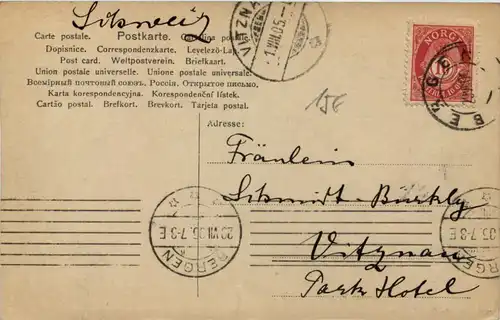 Schweiz
VITZNAU
1.VIII.05.
Carte postale. Postkarte. Cartolina postale.
Dopisnice. Correspondenzkarte. Levelező-Lap.
Post card. Weltpostverein. Briefkaart.
Union postale universelle. Unione postale universale.
Всемірный почтовый союзъ. Россія. Открытое письмо.
Karta korespondencyjna. Korespondenční lístek.
Cartão postal. Brefkort. Brevkort. Tarjeta postal.
NORGE
BERGEN
Adresse:
Fräulein
Schmidt-Burkly
Vitznau
Park Hotel
BERGEN
29 VII 05. 7-3 E
BERGEN
05. 7-3 E